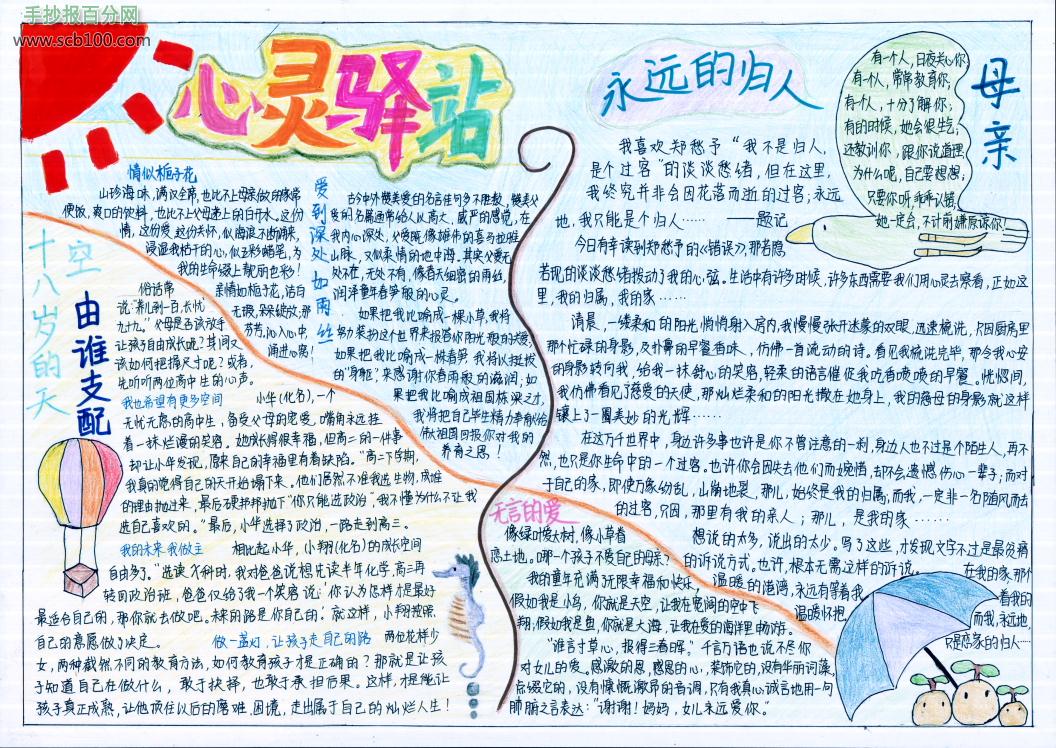 手抄报百分网
www.scb100.com
心灵驿站
情似栀子花
山珍海味,满汉全席,也比不上母亲做的家常
便饭,爽口的饮料,也比不上父母递上的白开水。这份
情,这份爱,这份关怀,似海浪不断涌来,
浸湿我枯干的心,似五彩蜡笔,为
我的生命缀上靓丽色彩!
亲情如栀子花,洁白
无瑕,朵朵绽放;那
芬芳,沁入心中,
涌进心窝!
爱到深处如雨丝
古今中外赞美爱的名言佳句多不胜数,赞美父
爱的名篇画带给人以高大、威严的感觉,在
我内心深处,父爱既像雄伟的喜马拉雅
山脉,又似柔情的地中海。其实父爱无
处不在,无处不有,像春天细密的雨丝,
润泽童年春笋般的心灵。
如果把我比喻成一棵小草,我将
努力装扮这个世界来报答你阳光般的关爱;
如果把我比喻成一根春笋,我将以挺拔
的“身躯”,来感谢你春雨般的滋润;如
果把我比喻成祖国栋梁之才,
我将把自己毕生精力奉献给
伟大祖国回报你对我的
养育之恩!
十八岁的天空
由谁支配
俗话常
说:“养儿到一百,长忧
九十九。”父母是否该放手
让孩子自由成长呢?其间又
该如何把握尺寸呢?或者,
先听听两位高中生的心声。
我也希望有更多空间
小华(化名),一个
无忧无虑的高中生,备受父母的宠爱,嘴角永远挂
着一抹烂漫的笑容。她成长得很幸福,但高二的一件事
却让小华发现,原来自己的幸福里有着缺陷。“高二下学期,
我真的觉得自己的天开始塌下来。他们居然不准我选生物,成堆
的理由抛过来,最后硬邦邦抛下“你只能选政治”,我不懂为什么不让我
选自己喜欢的。”最后,小华选择了政治,一路走到高三。
我的未来我做主
相比起小华,小翔(化名)的成长空间
自由多了。“选读X科时,我对爸爸说想先读半年化学,高三再
转回政治班,爸爸仅给了我一个笑容说:‘你认为怎样才是最好
最适合自己的,那你就去做吧。未来的路是你自己的。’就这样,小翔按照
自己的意愿做了决定。
做一盏灯,让孩子走自己的路
两位花样少
女,两种截然不同的教育方法,如何教育孩子才是正确的?那就是让孩
子知道自己在做什么,敢于抉择,也敢于承担后果。这样,才是能让
孩子真正成熟,让他顶住以后的磨难、困境,走出属于自己的灿烂人生!
永远的归人
我喜欢郑愁予“我不是归人,
是个过客”的淡淡愁绪,但在这里,
我终究并非会因花落而逝的过客;永远
地,我只能是个归人…… ——题记
今日有幸读到郑愁予的《错误》,那若隐
若现的淡淡愁绪拨动了我的心弦。生活中有许多时候,许多东西需要我们用心灵去察看,正如这
里,我的归属,我的家……
清晨,一缕柔和的阳光悄悄射入房内,我慢慢张开迷蒙的双眼,迅速梳洗,只因厨房里
那个忙碌的身影,及扑鼻的早餐香味,仿佛一首流动的诗。看见我梳洗完毕,那令我心安
的身影转向我,给我一抹舒心的笑容,轻柔的语言催促我吃香喷喷的早餐。恍惚间,
我仿佛看见了慈爱的天使,那灿烂柔和的阳光撒在她身上,我的慈母的身影就这样
镶上了一圈美妙的光辉……
在这万千世界中,身边许多事也许是你不曾注意的一刹,身边人也不过是个陌生人,再不
然,也只是你生命中的一个过客。也许你会因失去他们而婉惜,却不会遗憾伤心一辈子;而对
于自己的家,即使万象纷乱,山崩地裂,那儿,始终是我的归属;而我,一定非一名随风而去
的过客,只因,那里有我的亲人;那儿,是我的家……
想说的太多,说出的太少。写了这些,才发现文字不过是最贫瘠
的诉说方式。也许,根本无需这样的诉说。 在我的家,那个
温暖的港湾,永远有等着我的
温暖怀抱。
而我,永远地,
只是恋家的归人……
母亲
有一个人,日夜关心你;
有一个人,常常教育你;
有一个人,十分了解你;
有的时候,她会很生气;
还教训你,跟你说道理,
为什么呢,自己要想想;
只要你听乖乖认错,
她一定会,不计前嫌原谅你!
无言的爱
像绿叶爱大树,像小草眷
恋土地。哪一个孩子不爱自己的母亲?
我的童年充满了无限幸福和快乐,
假如我是小鸟,你就是天空,让我在宽阔的空中飞
翔,假如我是鱼,你就是大海,让我在爱的海洋里畅游。
“谁言寸草心,报得三春晖。”千言万语也说不尽你
对女儿的爱。感激的思,感恩的心,装饰它的,没有华丽词藻,
点缀它的,没有慷慨激昂的音调,只有我真心诚言地用一句
肺腑之言表达:“谢谢!妈妈,女儿永远爱你。”